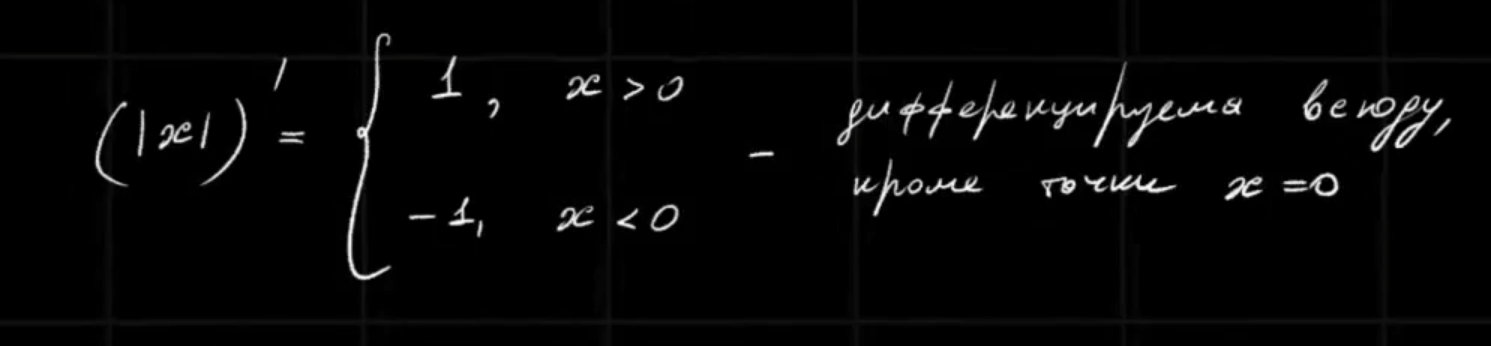 (|x|)' = { 1, x > 0
-1, x < 0
- дифференцируема всюду,
кроме точки x = 0